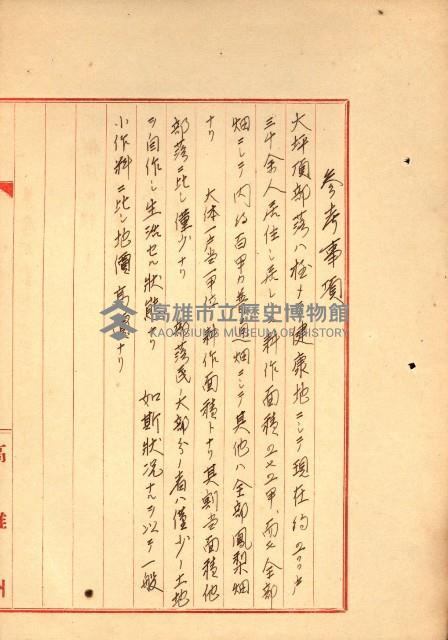 參考事項
大坪頂部落ハ極メテ健康地ニシテ現在約200戶
三十余人居住シ居レ 耕作面積222甲、而モ全部
畑ニシテ內約百甲ハ 畑ニシテ其他ハ全部鳳梨畑
ナリ 大体一戶当一甲位ノ耕作面積トナリ其割当面積他
部落ニ比シ僅少ナリ 部落民ノ大部分ノ者ハ僅少ノ土地
ヲ自作シ生活セル狀態ナリ 如斯狀況ナルヲ以テ一般
小作料ニ比シ地價高貴ナリ
高雄州
高雄市立歷史博物館
KAOHSIUNG MUSEUM OF HISTORY